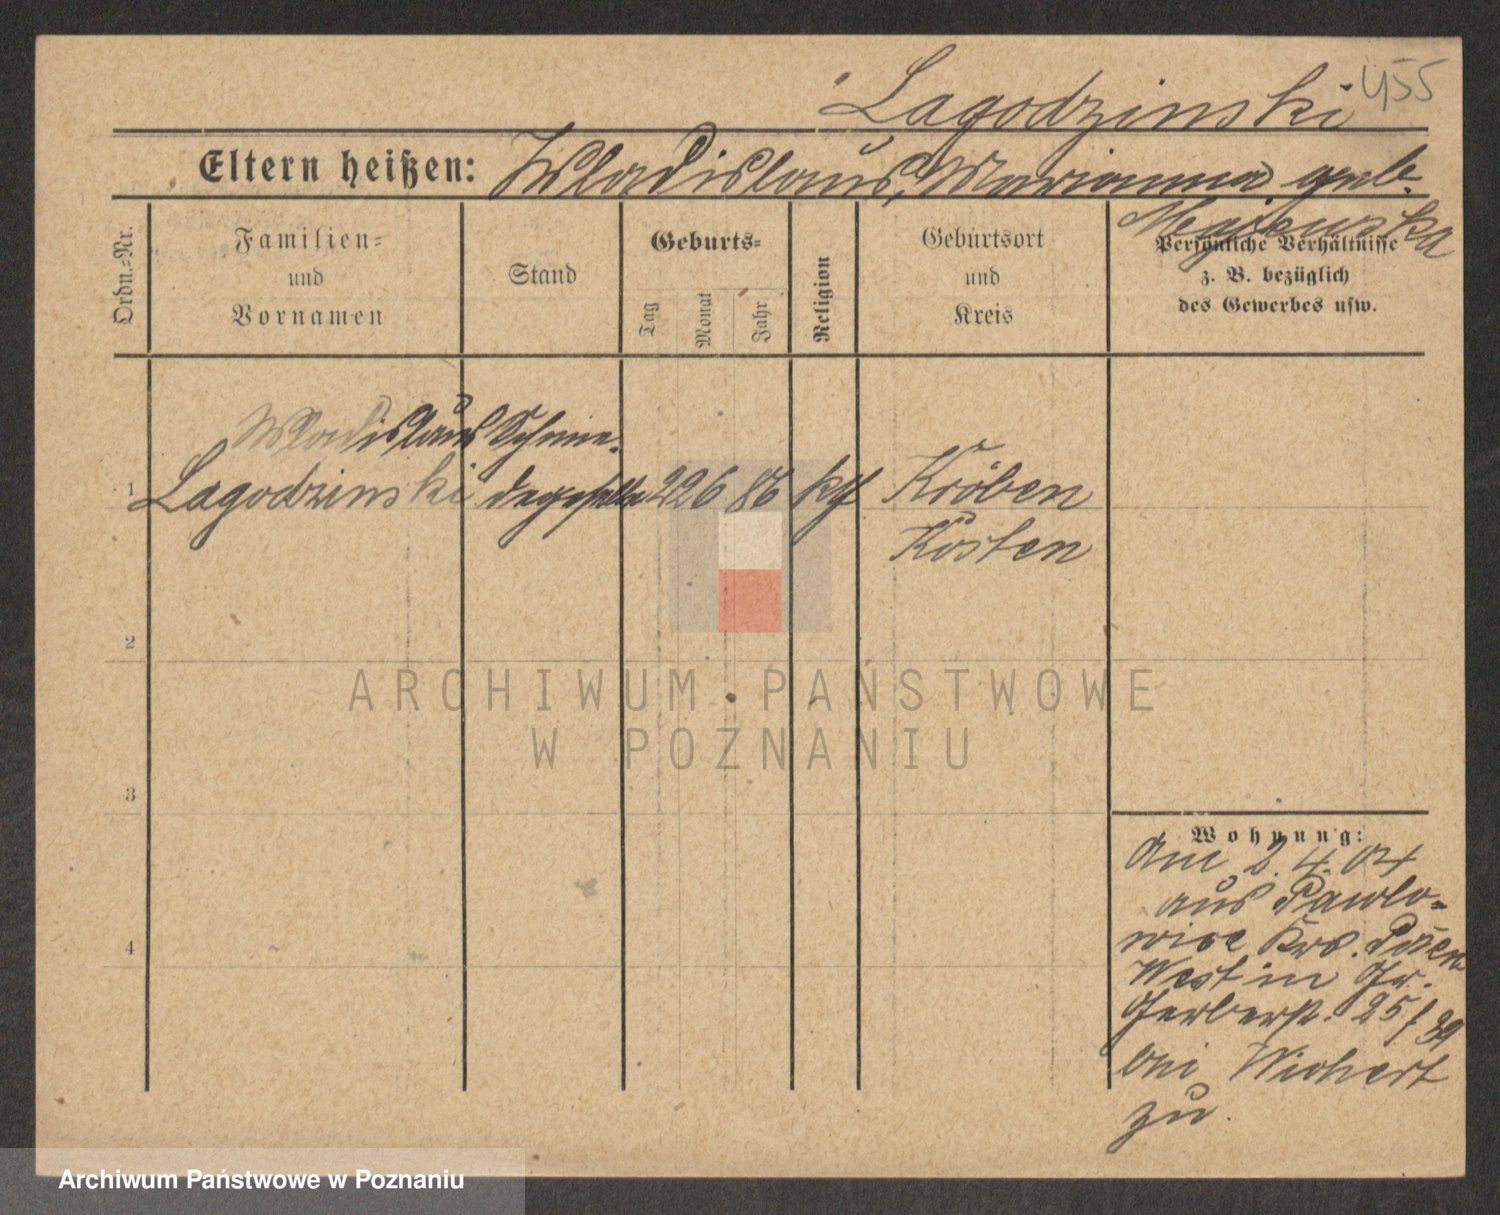 Lagodzinski 455
Eltern heißen: Wladislaus, Marianna geb.
Majewska
Ordn.-Nr.
Familien-
und
Vornamen
Stand
Geburts-
Tag
Monat
Jahr
Religion
Geburtsort
und
Kreis
Persönliche Verhältnisse
z. B. bezüglich
des Gewerbes usw.
Wladislaus Schmie-
1 Lagodzinski degeselle 22 6 86 kth Kröben
Kosten
2
3
4
ARCHIWUM PAŃSTWOWE
W POZNANIU
Wohnung:
Am 2.4.04
aus Pawlo-
wice Krs. Posen
West in Gr.
Gerberstr. 25/39
bei Wichert
zu.
Archiwum Państwowe w Poznaniu